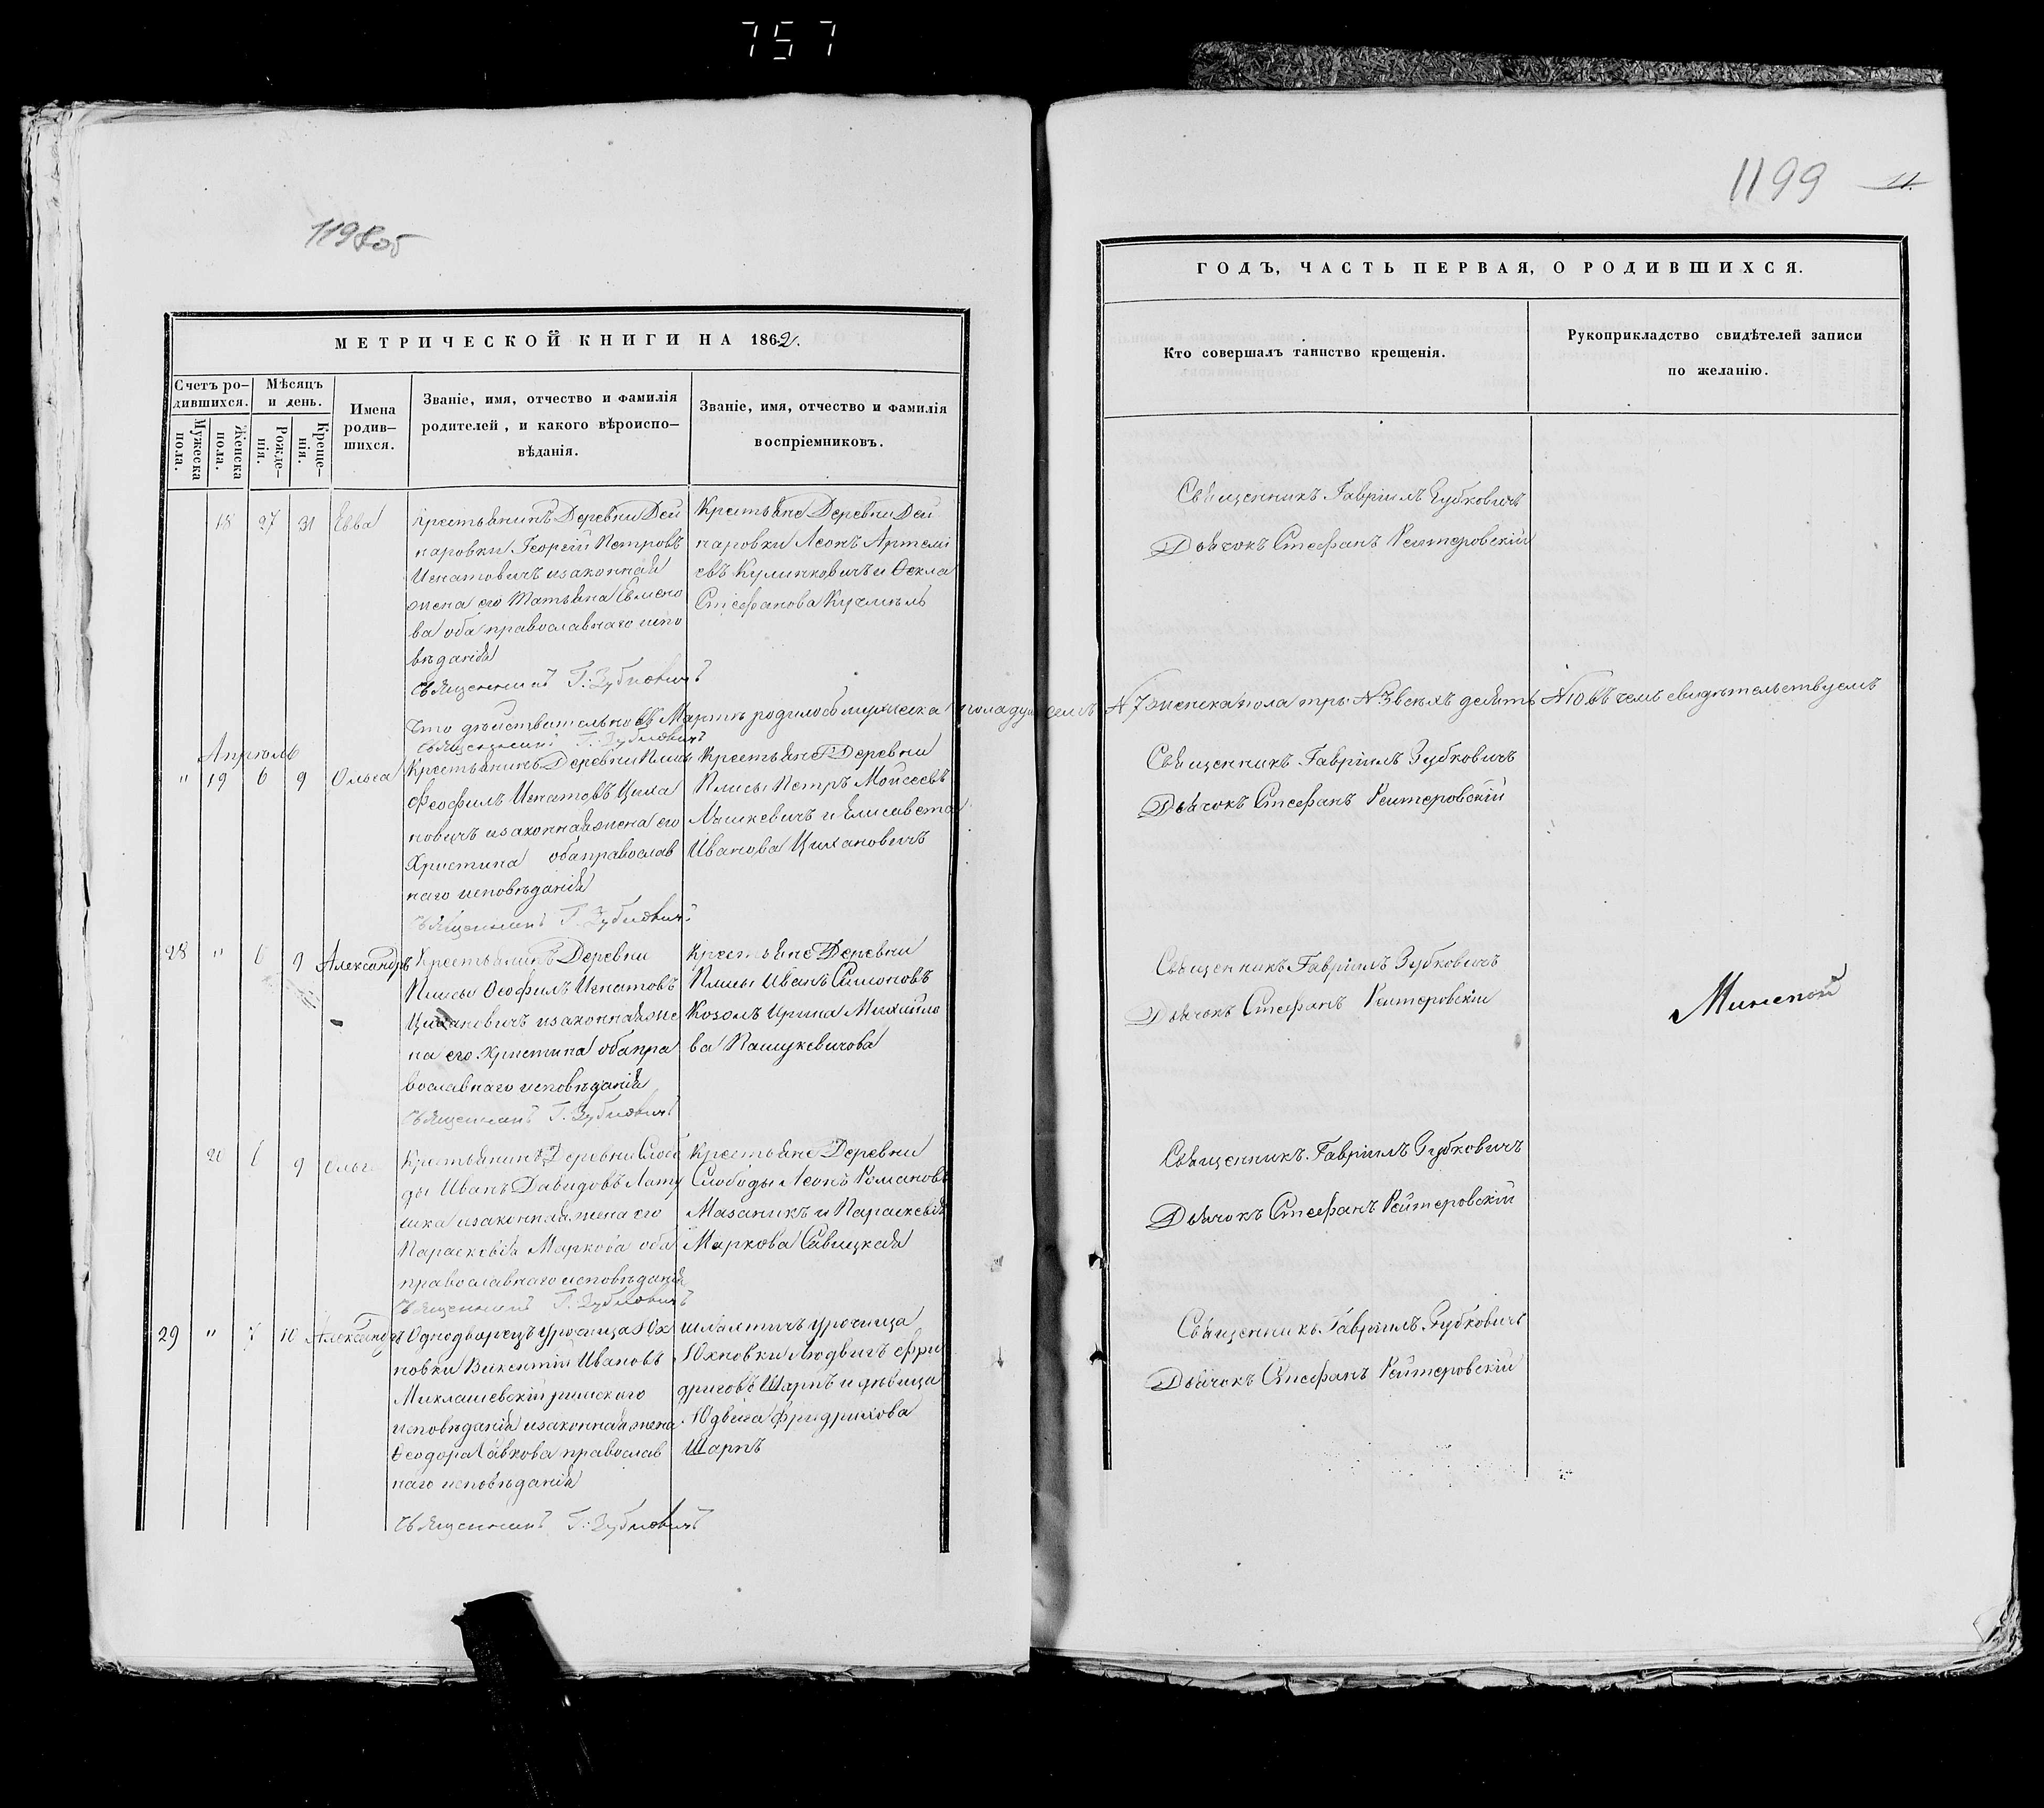 757
1198 об
МЕТРИЧЕСКОЙ КНИГИ НА 1862.
Счетъ ро-
дившихся.
Мѣсяцъ
и день.
Мужеска
пола.
Женска
пола.
Рожде-
нія.
Креще-
нія.
Имена
родив-
шихся.
Званіе, имя, отчество и фамилія
родителей, и какого вѣроиспо-
вѣданія.
Званіе, имя, отчество и фамилія
воспріемниковъ.
18 27 31 Евва
Крестьянинъ Деревни Дей
наровки Георгій Петровъ
Игнатовичъ и законная
жена его Татьяна Семено
ва оба православнаго испо
вѣданія
Священникъ Г. Зубковичъ
Крестьяне Деревни Дей
наровки Леонъ Артемі
евъ Кулинковичъ и Ѳекла
Стефанова
Что дѣйствительно въ Мартѣ родилось мужеска пола душ семь N 7 женска пола три N 3 всѣхъ десять N 10 въ чемъ свидѣтельствуемъ
Священникъ Г. Зубковичъ
Апрѣль
" 19 6 9 Ольга
Крестьянинъ Деревни Плисы
Ѳеофилъ Игнатовъ Циха
новичъ и законная жена его
Христина оба православ
наго исповѣданія
Священникъ Г. Зубковичъ
Крестьяне Деревни
Плисы Петръ Мойсеевъ
и Елисавета
Иванова Цихановичъ
28 " 6 9 Александръ
Крестьянинъ Деревни
Плисы Ѳеофилъ Игнатовъ
Цихановичъ и законная же
на его Христина оба пра
вославнаго исповѣданія
Священникъ Г. Зубковичъ
Крестьяне Деревни
Плисы Иванъ Симоновъ
Козолъ Ирина Михайло
ва Пашукевичова
20 6 9 Ольга
Крестьянинъ Деревни Слобо
ды Иванъ Давидовъ Лату
шка и законная жена его
Параскевія Маркова оба
православнаго исповѣданія
Священникъ Г. Зубковичъ
Крестьяне Деревни
Слободы Леонъ Романовъ
Мазаникъ и Параскевія
Маркова Савицкая
29 " 7 10 Александръ
Однодворецъ урочища Юх
новки Викентій Ивановъ
Миклашевскій римскаго
исповѣданія и законная жена
Ѳеодора Савкова православ
наго исповѣданія
Священникъ Г. Зубковичъ
шляхтичъ урочища
Юхновки Людвигъ Фри
дриховъ Шарпъ и дѣвица
Юдвига Фридрихова
Шарпъ
1199 11.
ГОДЪ, ЧАСТЬ ПЕРВАЯ, О РОДИВШИХСЯ.
Кто совершалъ таинство крещенія.
Рукоприкладство свидѣтелей записи
по желанію.
Священникъ Гавріилъ Зубковичъ
Дьячокъ Стефанъ Рейтеровскій
Священникъ Гавріилъ Зубковичъ
Дьячокъ Стефанъ Рейтеровскій
Священникъ Гавріилъ Зубковичъ
Дьячокъ Стефанъ Рейтеровскій
Минской
Священникъ Гавріилъ Зубковичъ
Дьячокъ Стефанъ Рейтеровскій
Священникъ Гавріилъ Зубковичъ
Дьячокъ Стефанъ Рейтеровскій